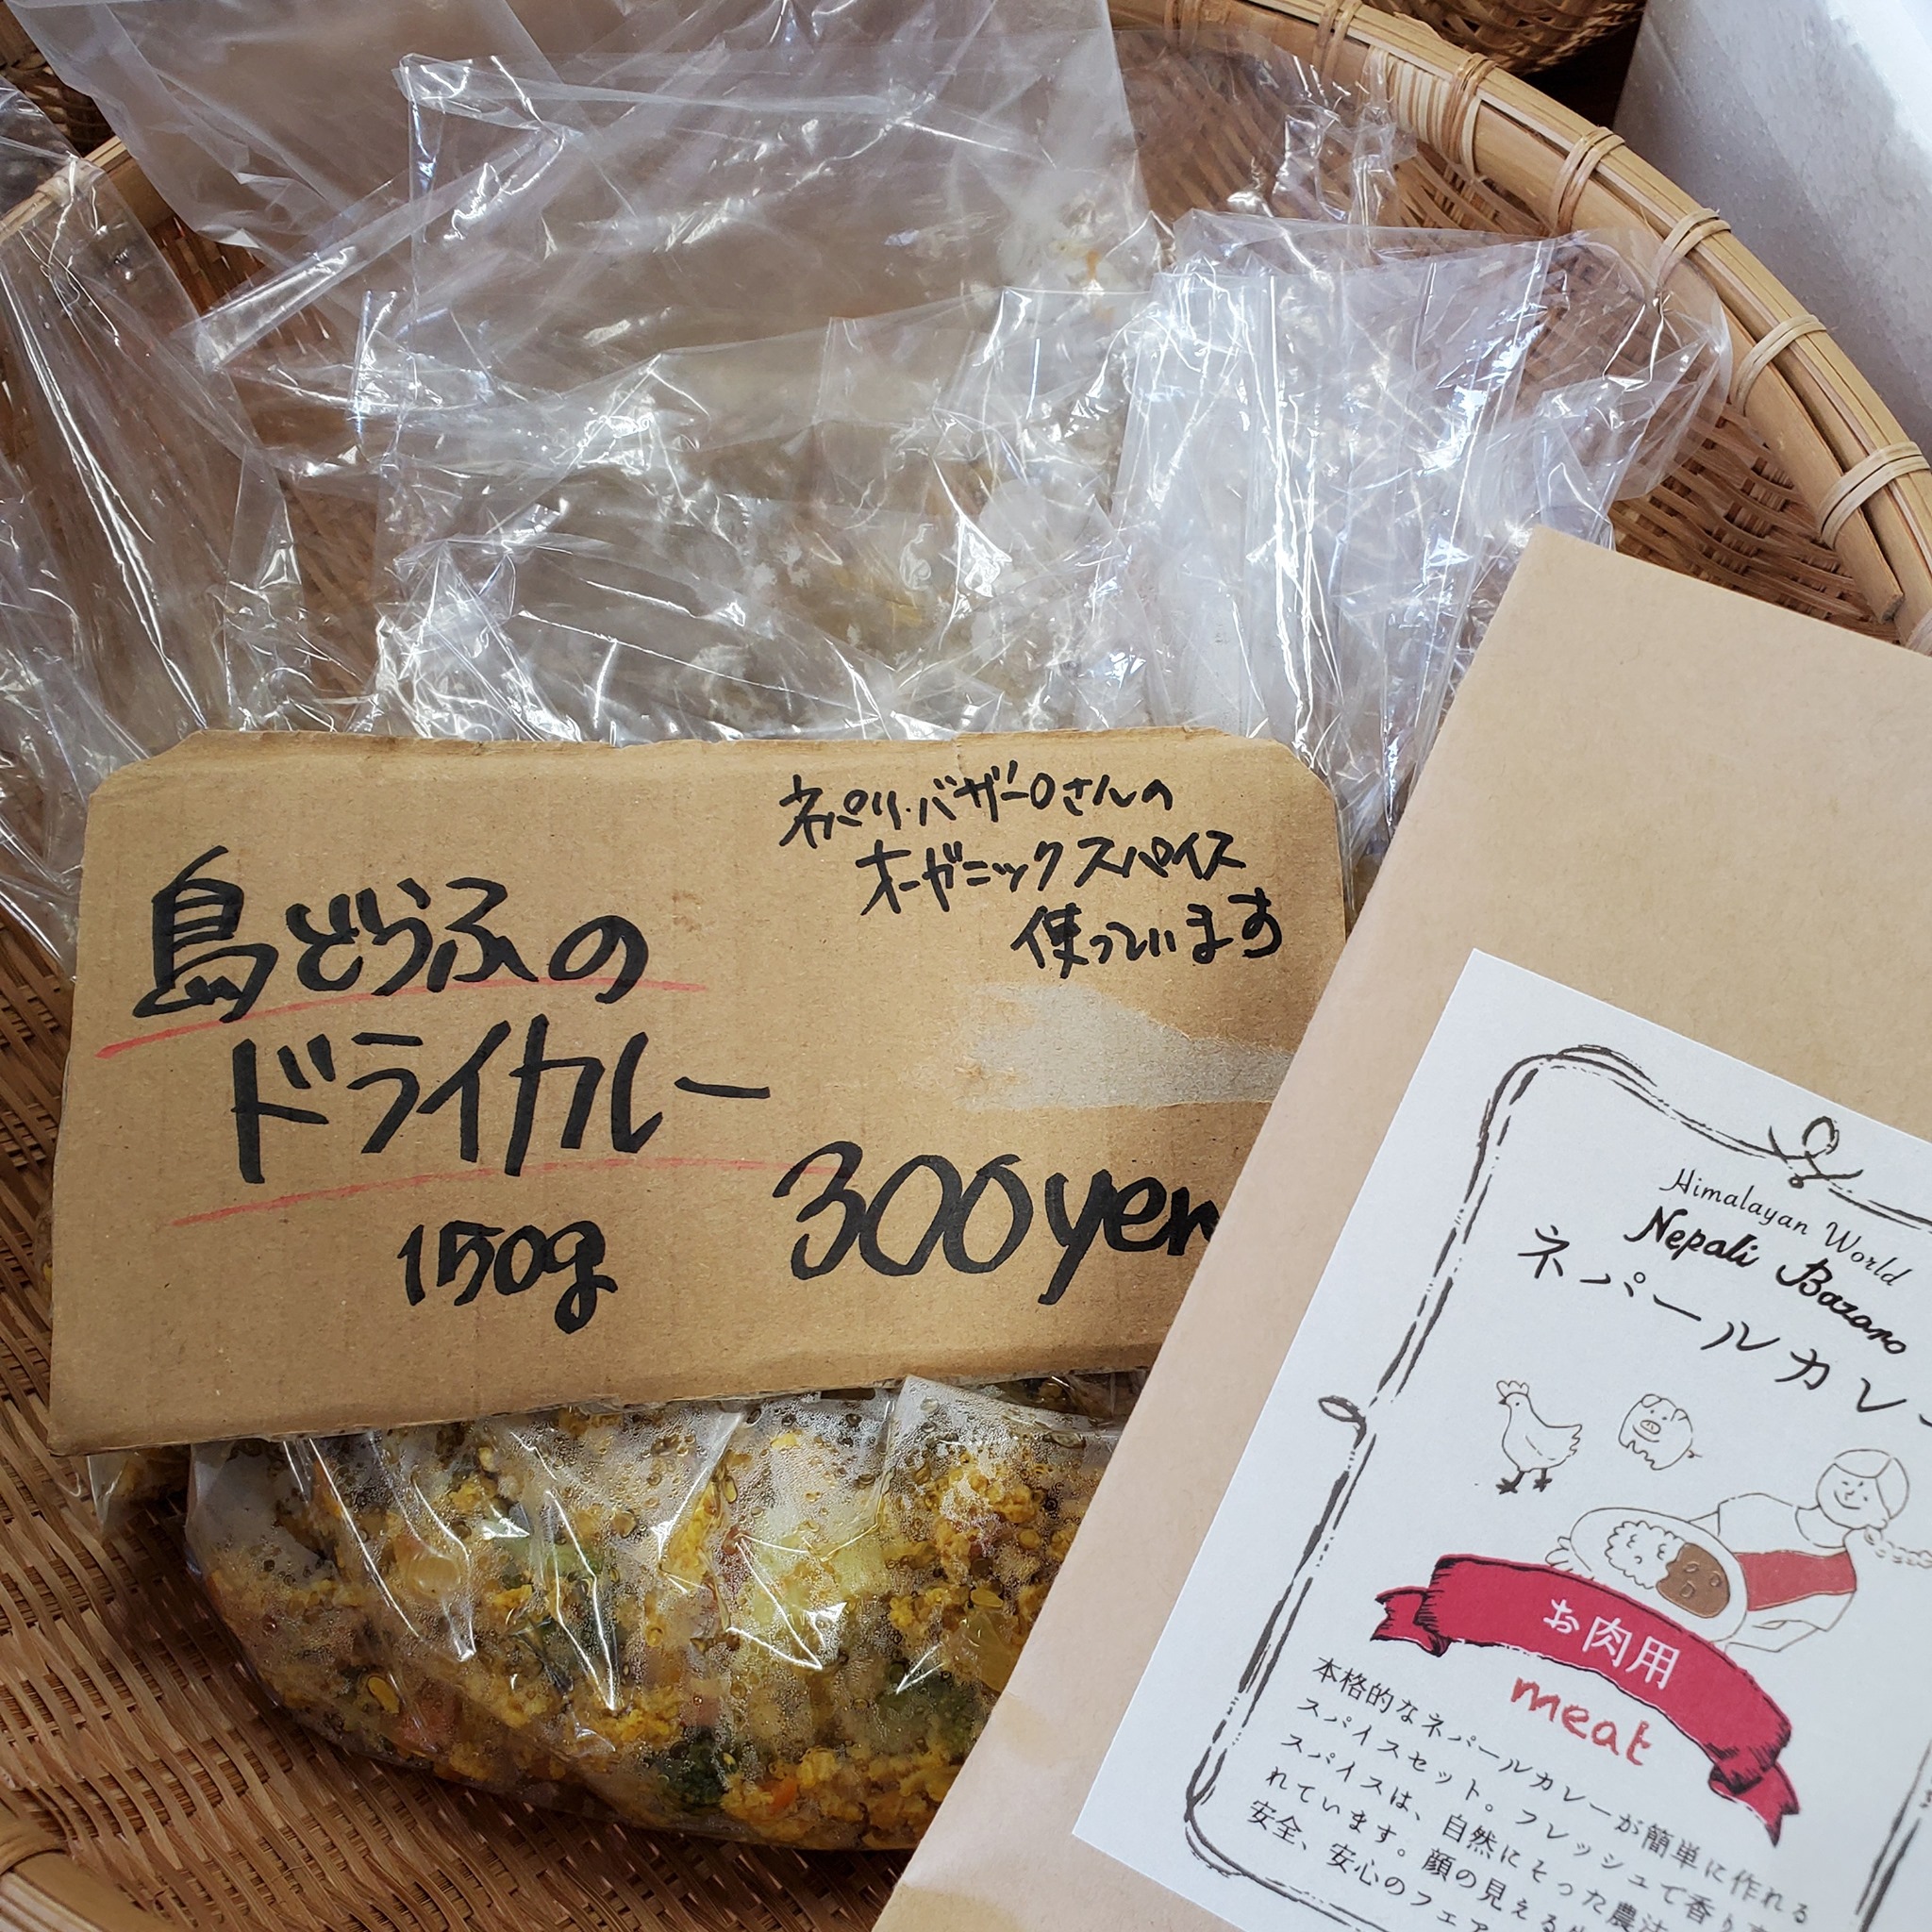 ネパリ・バザーロさんの
オーガニックスパイス
使っています
島どうふの
ドライカレー
150g
300yen
Himalayan World
Nepali Bazaro
ネパールカレー
お肉用
meat
本格的なネパールカレーが簡単に作れる
スパイスセット。フレッシュで香り
スパイスは、自然にそった農法
れています。顔の見える
安全、安心のフェア